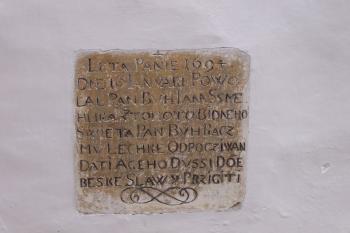 LETA PANIE 1694
DNE 16 LNVARI POWO
LAL PAN BVH IANA SSME
HLIKA Z TOHOTO BIDNEHO
SWIETA PAN BVH RACZ
MV LECHKE ODPOCZIWAN
DATI A GEHO DVSSI DOE
BESKE SLAWY PRZIGITI